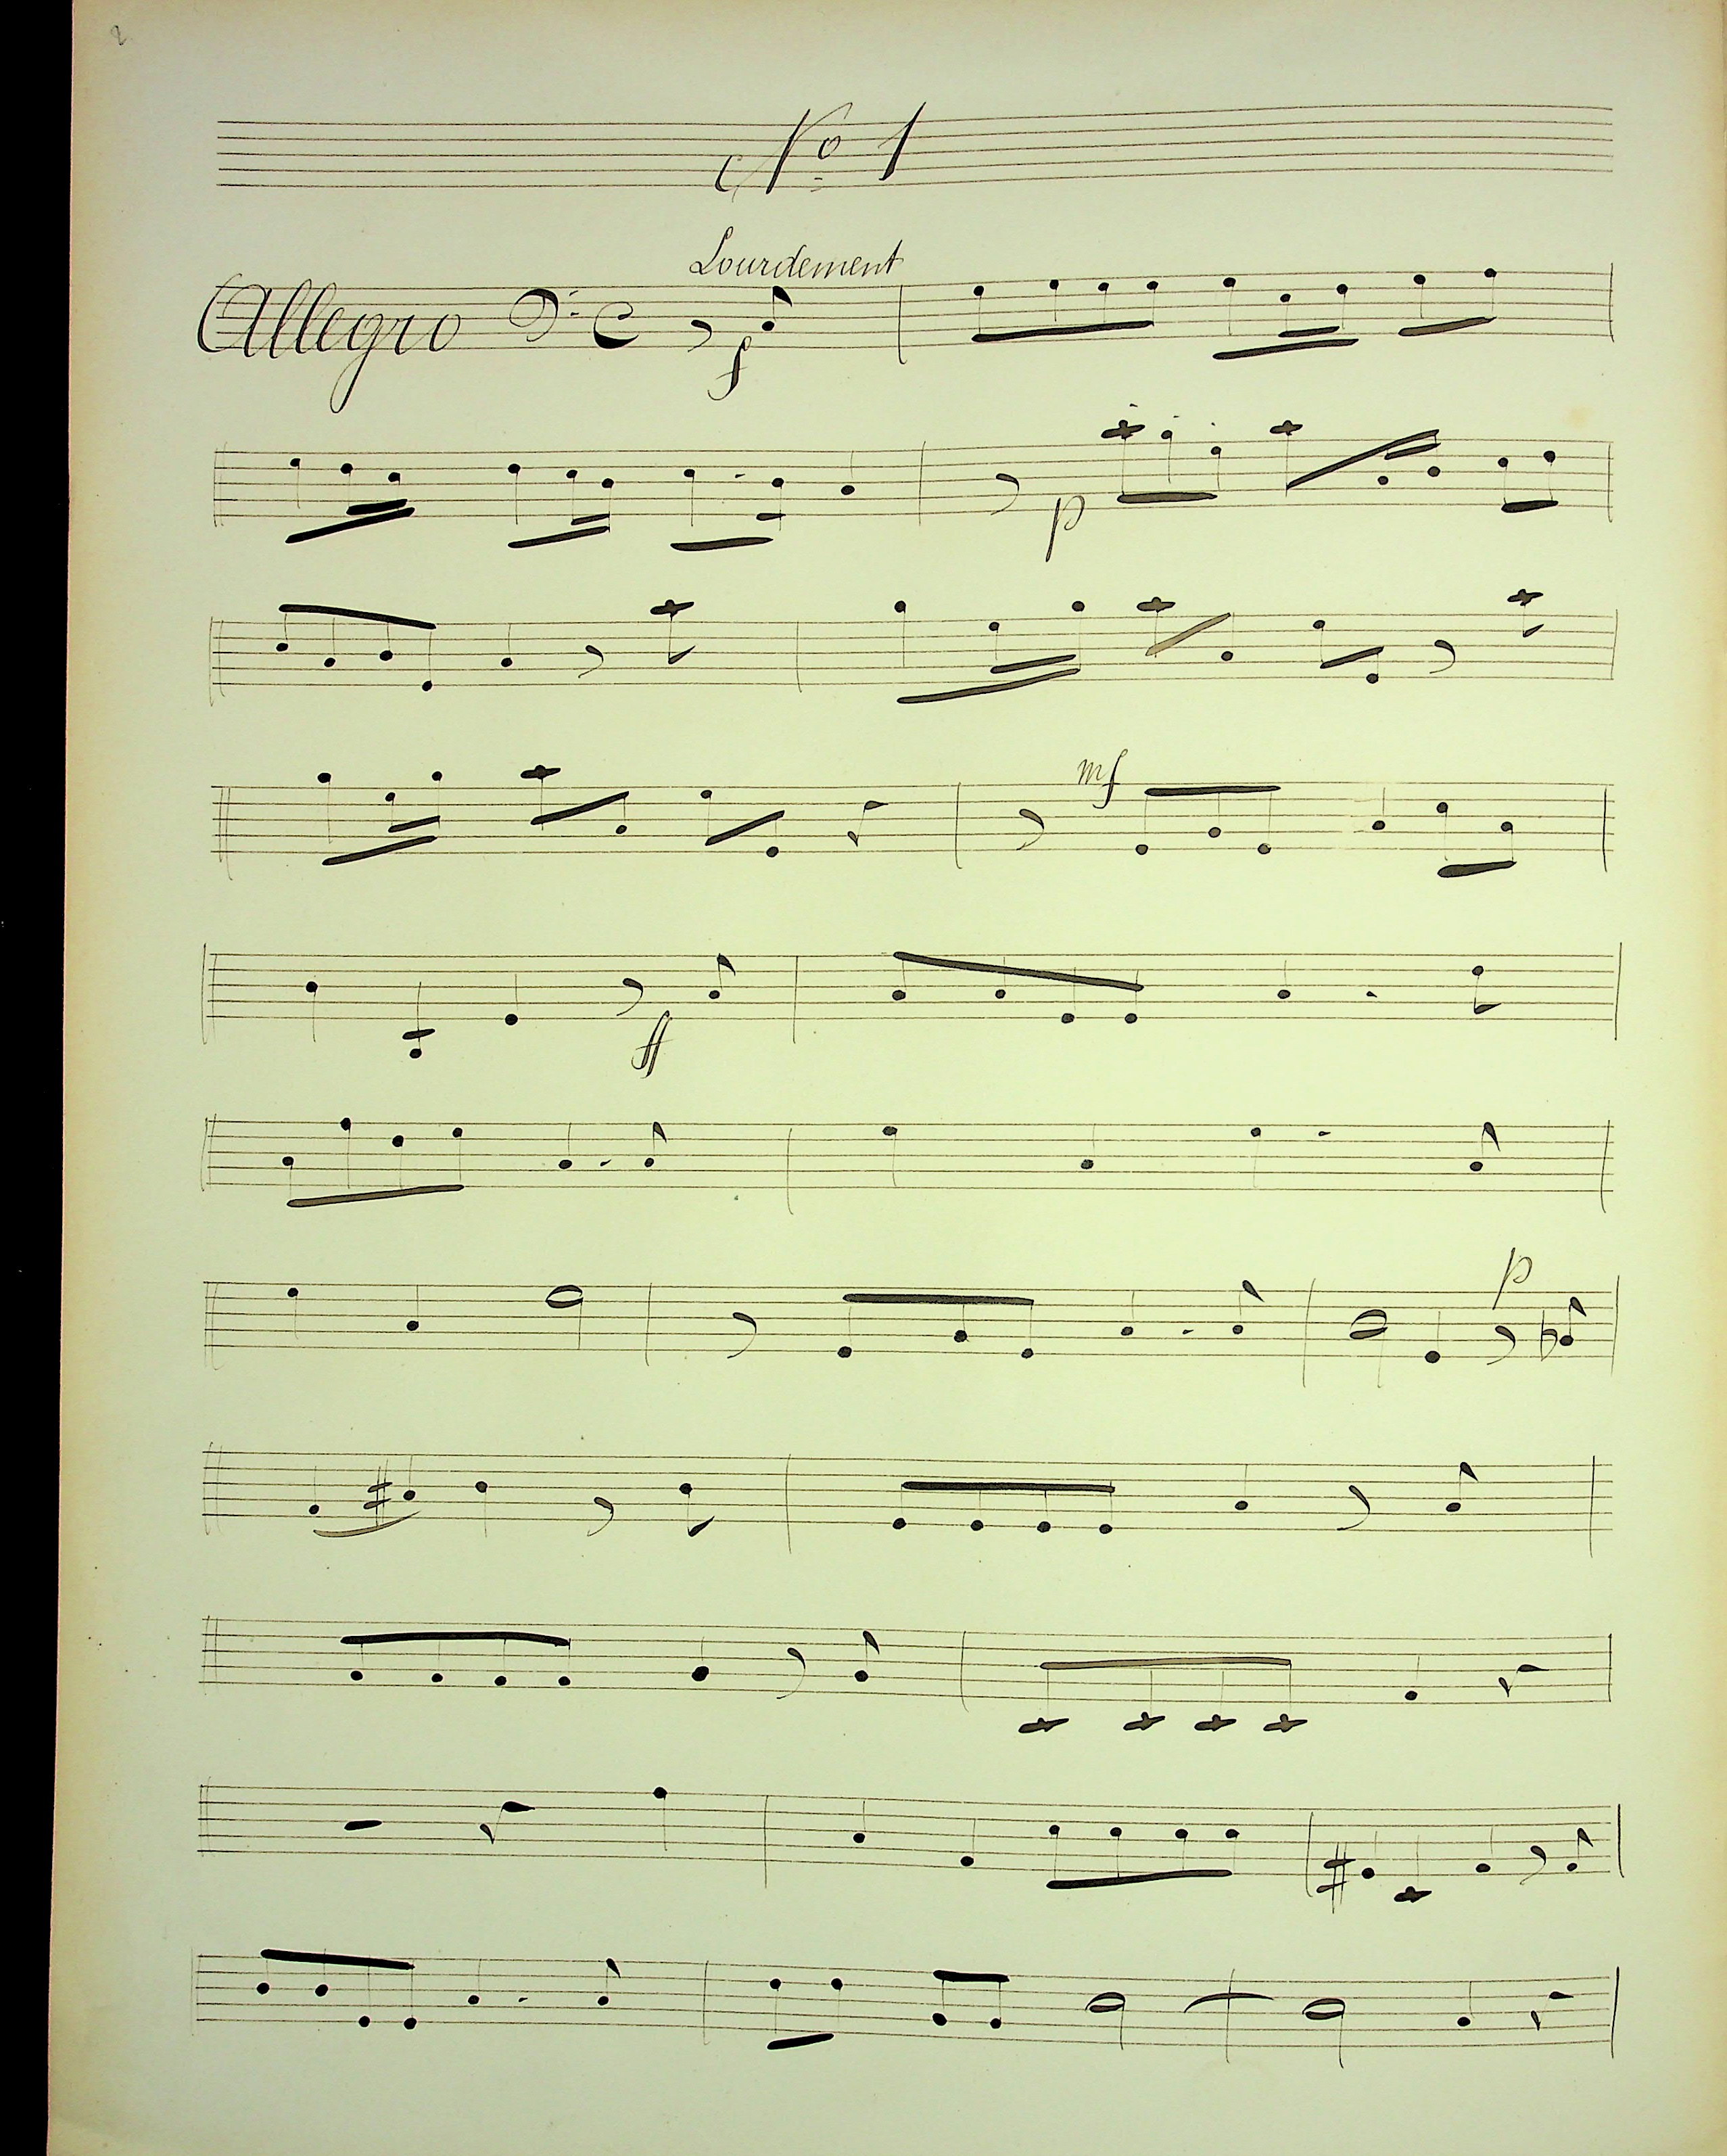 2
Nº 1
Lourdement
Allegro
f
p
mf
ff
p